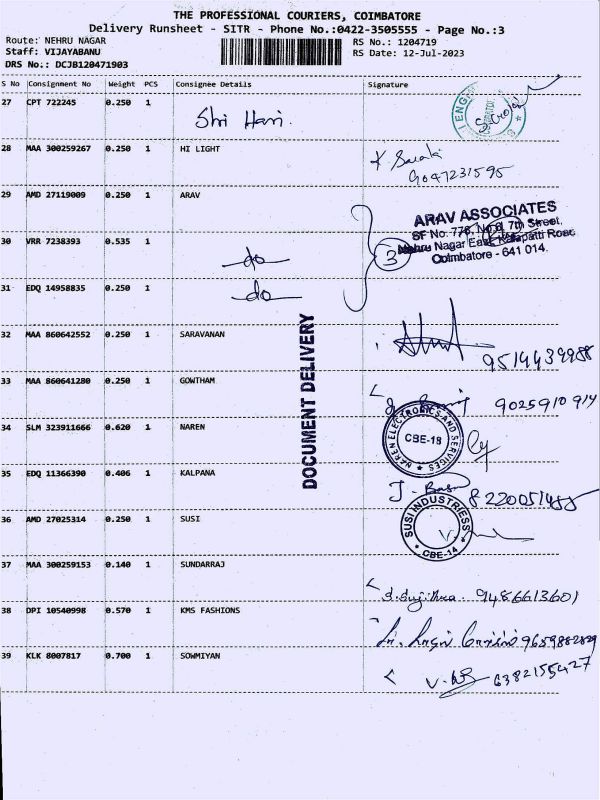 THE PROFESSIONAL COURIERS, COIMBATORE
Delivery Runsheet - SITR - Phone No.:0422-3505555 - Page No.:3
Route: NEHRU NAGAR RS No.: 1204719
Staff: VIJAYABANU RS Date: 12-Jul-2023
DRS No.: DCJB120471903
S No Consignment No Weight PCS Consignee Details Signature
27 CPT 722245 0.250 1 Shri Hari.
28 MAA 300259267 0.250 1 HI LIGHT
9047231595
29 AMD 27119009 0.250 1 ARAV
ARAV ASSOCIATES
SF No: 778, No.6, 7th Street,
Nehru Nagar East, Kalapatti Road
Coimbatore - 641 014.
30 VRR 7238393 0.535 1 do 3
31 EDQ 14958835 0.250 1 do
DOCUMENT DELIVERY
32 MAA 860642552 0.250 1 SARAVANAN
33 MAA 860641280 0.250 1 GOWTHAM
9025910914
34 SLM 323911666 0.620 1 NAREN
NAREN ELECTRONICS AND SERVICES
CBE-18
35 EDQ 11366390 0.406 1 KALPANA
36 AMD 27025314 0.250 1 SUSI
SUSI INDUSTRIESS
CBE-14
37 MAA 300259153 0.140 1 SUNDARRAJ
9486613601
38 DPI 10540998 0.570 1 KMS FASHIONS
39 KLK 8007817 0.700 1 SOWMIYAN
6382155427